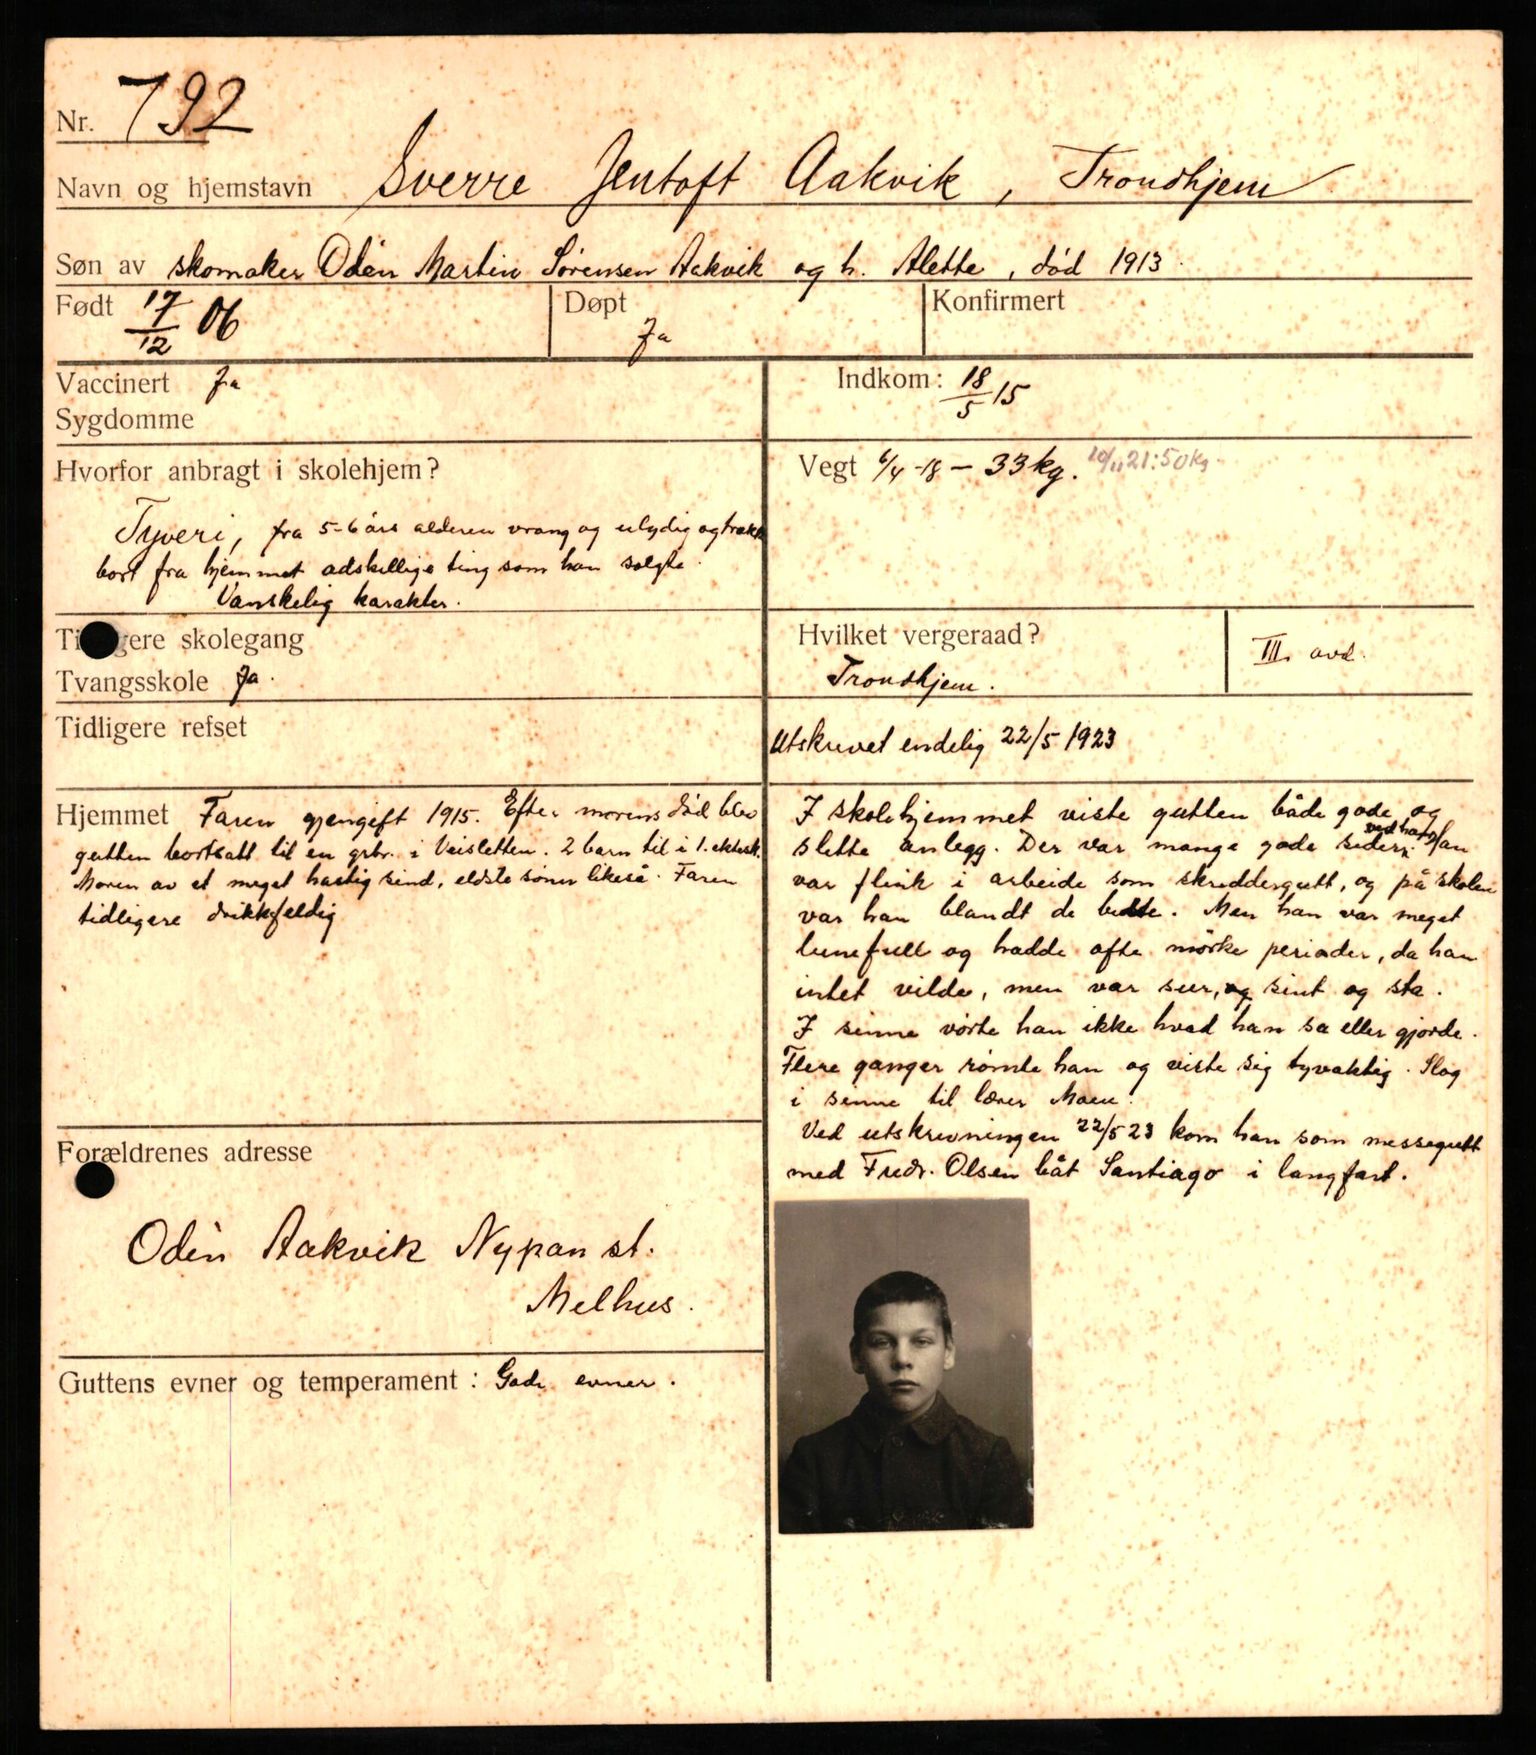 Nr. 792
Navn og hjemstavn Sverre Jentoft Aakvik, Trondhjem
Søn av skomaker Odin Martin Sørensen Aakvik og h. Alette, død 1913.
Født 17/12 06
Døpt Ja
Konfirmert
Vaccinert Ja
Sygdomme
Indkom: 18/5 15
Hvorfor anbragt i skolehjem?
Tyveri, fra 5-6 års alderen vrang og ulydig og
bort fra hjemmet adskillige ting som han solgte.
Vanskelig karakter.
Vegt 6/4-18 – 33 kg. 10/11 21: 50 kg.
Ti gere skolegang
Tvangsskole Ja.
Hvilket vergeraad?
Trondhjem.
III. avd.
Tidligere refset
Utskrevet endelig 22/5 1923
Hjemmet Faren gjengift 1915. Efter morens död blev
gutten bortsatt til en grbr. i Veisletten. 2 barn til i 1. ektesk.
Moren av et meget hastig sind, eldste sönn likeså. Faren
tidligere drikkfeldig
Forældrenes adresse
Odin Aakvik Nypan st.
Melhus.
Guttens evner og temperament: Gode evner.
I skolehjemmet viste gutten både gode og
slette anlegg. Der var mange gode sider ved ham. Han
var flink i arbeide som skreddergutt, og på skolen
var han blandt de beste. Men han var meget
lunefull og hadde ofte mörke perioder, da han
intet vilde, men var sur, og sint og sta.
I sinne vörte han ikke hvad han sa eller gjorde.
Flere ganger römte han og viste sig tyvaktig. Slog
i sinne til lærer Moen.
Ved utskrivningen 22/5 23 kom han som messegutt
med Fredr. Olsen båt Santiago i langfart.